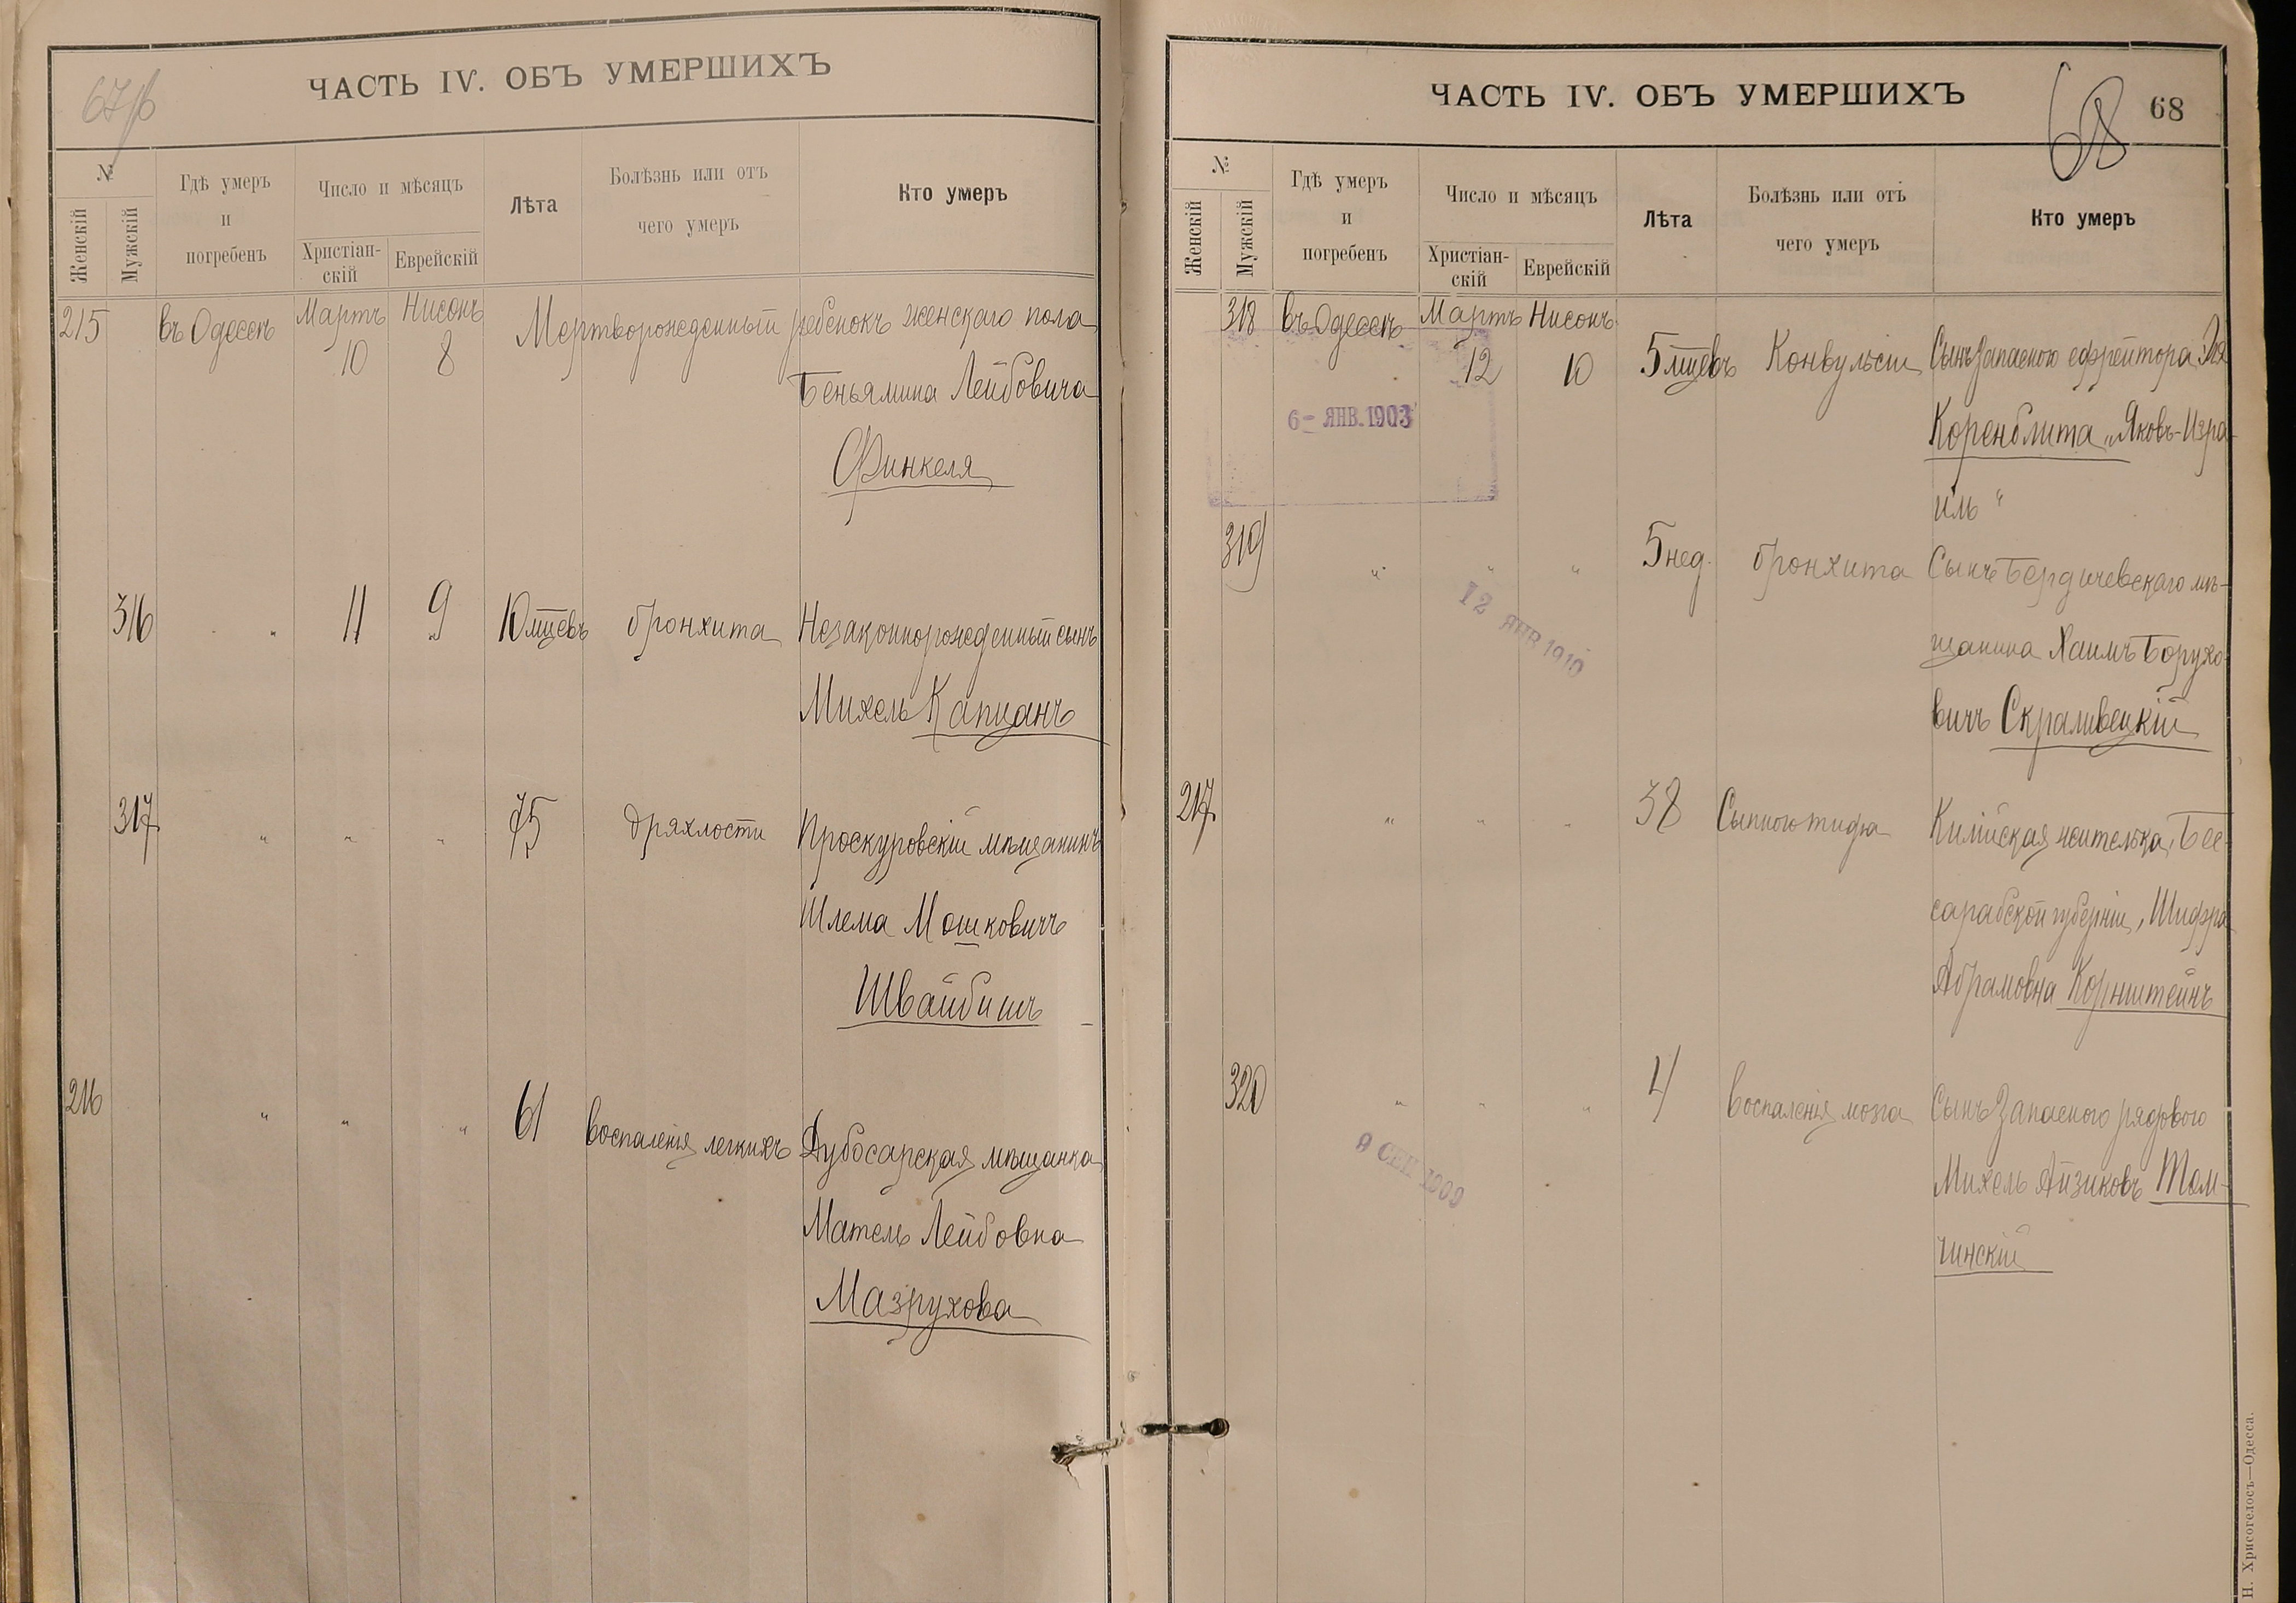 67/б
ЧАСТЬ IV. ОБЪ УМЕРШИХЪ
№
Женскій
Мужскій
Гдѣ умеръ
и
погребенъ
Число и мѣсяцъ
Христіан-
скій
Еврейскій
Лѣта
Болѣзнь или отъ
чего умеръ
Кто умеръ
215 въ Одессѣ Мартъ Нисонъ Мертворожденный ребенокъ женскаго пола
10 8 Беньямина Лейбовича
Финкеля
316 " 11 9 10 мцевъ бронхита Незаконнорожденный сынъ
Михель Капцанъ
317 " " " 75 дряхлости Проскуровскій мѣщанинъ
Шлема Мошковичъ
Швайбишъ
216 " " " 61 воспаленія легкихъ Дубосарская мѣщанка
Матель Лейбовна
Мазрухова
ЧАСТЬ IV. ОБЪ УМЕРШИХЪ
68
68
№
Женскій
Мужскій
Гдѣ умеръ
и
погребенъ
Число и мѣсяцъ
Христіан-
скій
Еврейскій
Лѣта
Болѣзнь или отъ
чего умеръ
Кто умеръ
318 въ Одессѣ Мартъ Нисонъ
12 10 5 мцевъ Конвульсіи Сынъ запасного ефрейтора
6 - ЯНВ. 1903
Коренблита „Яковъ-Изра-
иль“
319 " " " 5 нед. бронхита Сынъ Бердичевскаго мѣ-
12 ЯНВ 1910
щанина Хаимъ Борухо-
вичъ Скраливецкій
217 " " " 38 Сыпного тифа Килійская жителька, Бес-
сарабской губерніи, Шифра
Абрамовна Корнштейнъ
320 " " " 4 воспаленія мозга Сынъ Запасного рядового
9 СЕН 1909
Михель Айзиковъ Том-
чинскій
Н. Хрисогелосъ—Одесса.